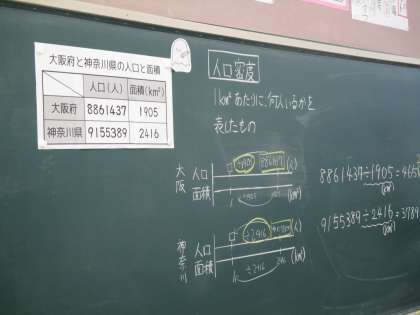 大阪府と神奈川県の人口と面積
人口(人) 面積(km²)
大阪府 8861437 1905
神奈川県 9155389 2416
人口密度
1km²あたりに、何人いるかを
表したもの
大阪
人口 □ ÷1905 8861437 (人)
面積 (km²)
÷1905
8861437÷1905=465
(km²)
神奈川
人口 □ ÷2416 (人)
面積 (km²)
1 2416
÷2416
9155389÷2416=3789
(km²)